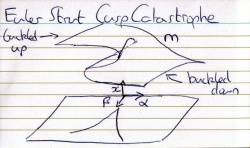 Euler Strut Cusp Catastrophe
buckled
up
m
buckled
down
x
β
α